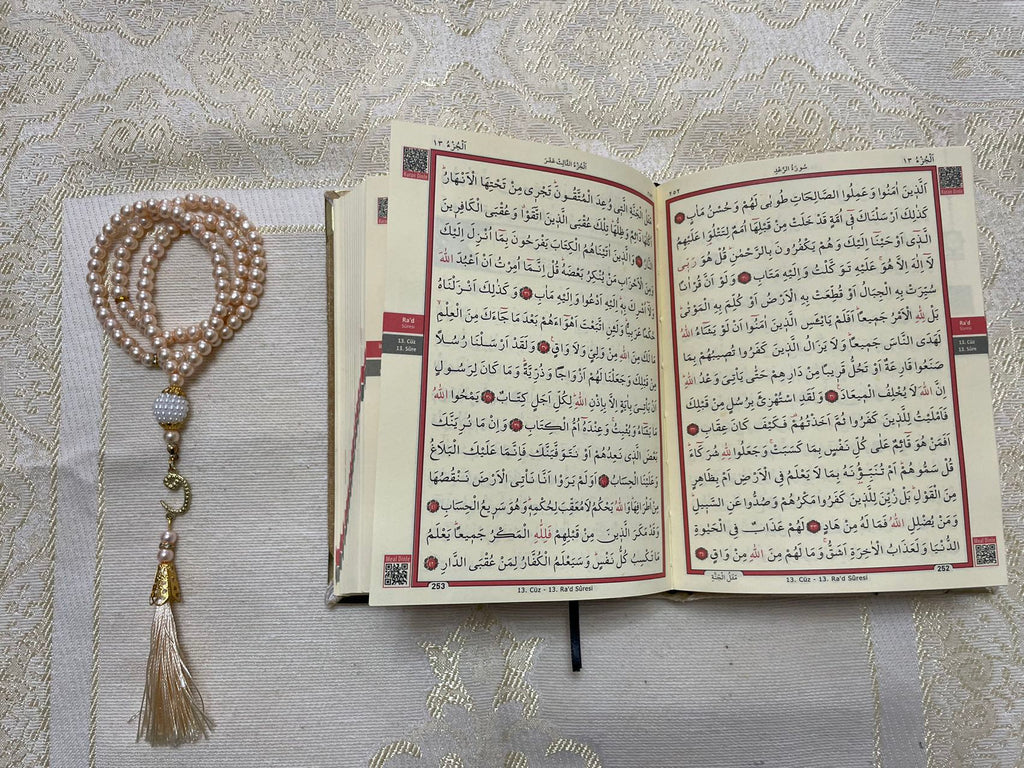 اَلْجُزْءُ ١٣
سُورَةُ الرَّعْدِ
٢٥٢
اَلَّذ۪ينَ اٰمَنُوا وَعَمِلُوا الصَّالِحَاتِ طُوبٰى لَهُمْ وَحُسْنُ مَاٰبٍ ﴿٢٩﴾
كَذٰلِكَ اَرْسَلْنَاكَ ف۪ٓي اُمَّةٍ قَدْ خَلَتْ مِنْ قَبْلِهَٓا اُمَمٌ لِتَتْلُوَا۬ عَلَيْهِمُ
الَّذ۪ٓي اَوْحَيْنَٓا اِلَيْكَ وَهُمْ يَكْفُرُونَ بِالرَّحْمٰنِۜ قُلْ هُوَ رَبّ۪ي
لَٓا اِلٰهَ اِلَّا هُوَۚ عَلَيْهِ تَوَكَّلْتُ وَاِلَيْهِ مَتَابِ ﴿٣٠﴾ وَلَوْ اَنَّ قُرْاٰنًا
سُيِّرَتْ بِهِ الْجِبَالُ اَوْ قُطِّعَتْ بِهِ الْاَرْضُ اَوْ كُلِّمَ بِهِ الْمَوْتٰىۜ
بَلْ لِلّٰهِ الْاَمْرُ جَم۪يعًاۜ اَفَلَمْ يَايْـَٔسِ الَّذ۪ينَ اٰمَنُٓوا اَنْ لَوْ يَشَٓاءُ اللّٰهُ
لَهَدَى النَّاسَ جَم۪يعًاۜ وَلَا يَزَالُ الَّذ۪ينَ كَفَرُوا تُص۪يبُهُمْ بِمَا
صَنَعُوا قَارِعَةٌ اَوْ تَحُلُّ قَر۪يبًا مِنْ دَارِهِمْ حَتّٰى يَأْتِيَ وَعْدُ اللّٰهِۜ
اِنَّ اللّٰهَ لَا يُخْلِفُ الْم۪يعَادَ۟ ﴿٣١﴾ وَلَقَدِ اسْتُهْزِئَ بِرُسُلٍ مِنْ قَبْلِكَ
فَاَمْلَيْتُ لِلَّذ۪ينَ كَفَرُوا ثُمَّ اَخَذْتُهُمْ فَكَيْفَ كَانَ عِقَابِ ﴿٣٢﴾
اَفَمَنْ هُوَ قَٓائِمٌ عَلٰى كُلِّ نَفْسٍ بِمَا كَسَبَتْۚ وَجَعَلُوا لِلّٰهِ شُرَكَٓاءَۜ
قُلْ سَمُّوهُمْۜ اَمْ تُنَبِّؤُ۫نَهُ بِمَا لَا يَعْلَمُ فِي الْاَرْضِ اَمْ بِظَاهِرٍ
مِنَ الْقَوْلِۜ بَلْ زُيِّنَ لِلَّذ۪ينَ كَفَرُوا مَكْرُهُمْ وَصُدُّوا عَنِ السَّب۪يلِۜ
وَمَنْ يُضْلِلِ اللّٰهُ فَمَا لَهُ مِنْ هَادٍ ﴿٣٣﴾ لَهُمْ عَذَابٌ فِي الْحَيٰوةِ
الدُّنْيَا وَلَعَذَابُ الْاٰخِرَةِ اَشَقُّۚ وَمَا لَهُمْ مِنَ اللّٰهِ مِنْ وَاقٍ ﴿٣٤﴾
مَثَلُ الْجَنَّةِ
13. Cüz - 13. Ra'd Sûresi
252
Ra'd
Sûresi
13. Cüz
13. Sûre
Meal Dinle
اَلْجُزْءُ ١٣
اَلْجُزْءُ الثَّالِثَ عَشَرَ
Kuran Dinle
مَثَلُ الْجَنَّةِ الَّت۪ي وُعِدَ الْمُتَّقُونَۜ تَجْر۪ي مِنْ تَحْتِهَا الْاَنْهَارُۜ
اُكُلُهَا دَٓائِمٌ وَظِلُّهَاۜ تِلْكَ عُقْبَى الَّذ۪ينَ اتَّقَوْاۗ وَعُقْبَى الْكَافِر۪ينَ
النَّارُ ﴿٣٥﴾ وَالَّذ۪ينَ اٰتَيْنَاهُمُ الْكِتَابَ يَفْرَحُونَ بِمَٓا اُنْزِلَ اِلَيْكَ
وَمِنَ الْاَحْزَابِ مَنْ يُنْكِرُ بَعْضَهُۜ قُلْ اِنَّمَٓا اُمِرْتُ اَنْ اَعْبُدَ اللّٰهَ
وَلَٓا اُشْرِكَ بِه۪ۜ اِلَيْهِ اَدْعُوا وَاِلَيْهِ مَاٰبِ ﴿٣٦﴾ وَكَذٰلِكَ اَنْزَلْنَاهُ
حُكْمًا عَرَبِيًّاۜ وَلَئِنِ اتَّبَعْتَ اَهْوَٓاءَهُمْ بَعْدَ مَا جَٓاءَكَ مِنَ الْعِلْمِۙ
مَا لَكَ مِنَ اللّٰهِ مِنْ وَلِيٍّ وَلَا وَاقٍ۟ ﴿٣٧﴾ وَلَقَدْ اَرْسَلْنَا رُسُلًا
مِنْ قَبْلِكَ وَجَعَلْنَا لَهُمْ اَزْوَاجًا وَذُرِّيَّةًۜ وَمَا كَانَ لِرَسُولٍ
اَنْ يَأْتِيَ بِاٰيَةٍ اِلَّا بِاِذْنِ اللّٰهِۜ لِكُلِّ اَجَلٍ كِتَابٌ ﴿٣٨﴾ يَمْحُوا اللّٰهُ
مَا يَشَٓاءُ وَيُثْبِتُۚ وَعِنْدَهُٓ اُمُّ الْكِتَابِ ﴿٣٩﴾ وَاِنْ مَا نُرِيَنَّكَ
بَعْضَ الَّذ۪ي نَعِدُهُمْ اَوْ نَتَوَفَّيَنَّكَ فَاِنَّمَا عَلَيْكَ الْبَلَاغُ
وَعَلَيْنَا الْحِسَابُ ﴿٤٠﴾ اَوَلَمْ يَرَوْا اَنَّا نَأْتِي الْاَرْضَ نَنْقُصُهَا
مِنْ اَطْرَافِهَاۜ وَاللّٰهُ يَحْكُمُ لَا مُعَقِّبَ لِحُكْمِه۪ۜ وَهُوَ سَر۪يعُ الْحِسَابِ ﴿٤١﴾
وَقَدْ مَكَرَ الَّذ۪ينَ مِنْ قَبْلِهِمْ فَلِلّٰهِ الْمَكْرُ جَم۪يعًاۜ يَعْلَمُ
مَا تَكْسِبُ كُلُّ نَفْسٍۜ وَسَيَعْلَمُ الْكُفَّارُ لِمَنْ عُقْبَى الدَّارِ ﴿٤٢﴾
13. Cüz - 13. Ra'd Sûresi
253
Ra'd
Sûresi
13. Cüz
13. Sûre
Meal Dinle